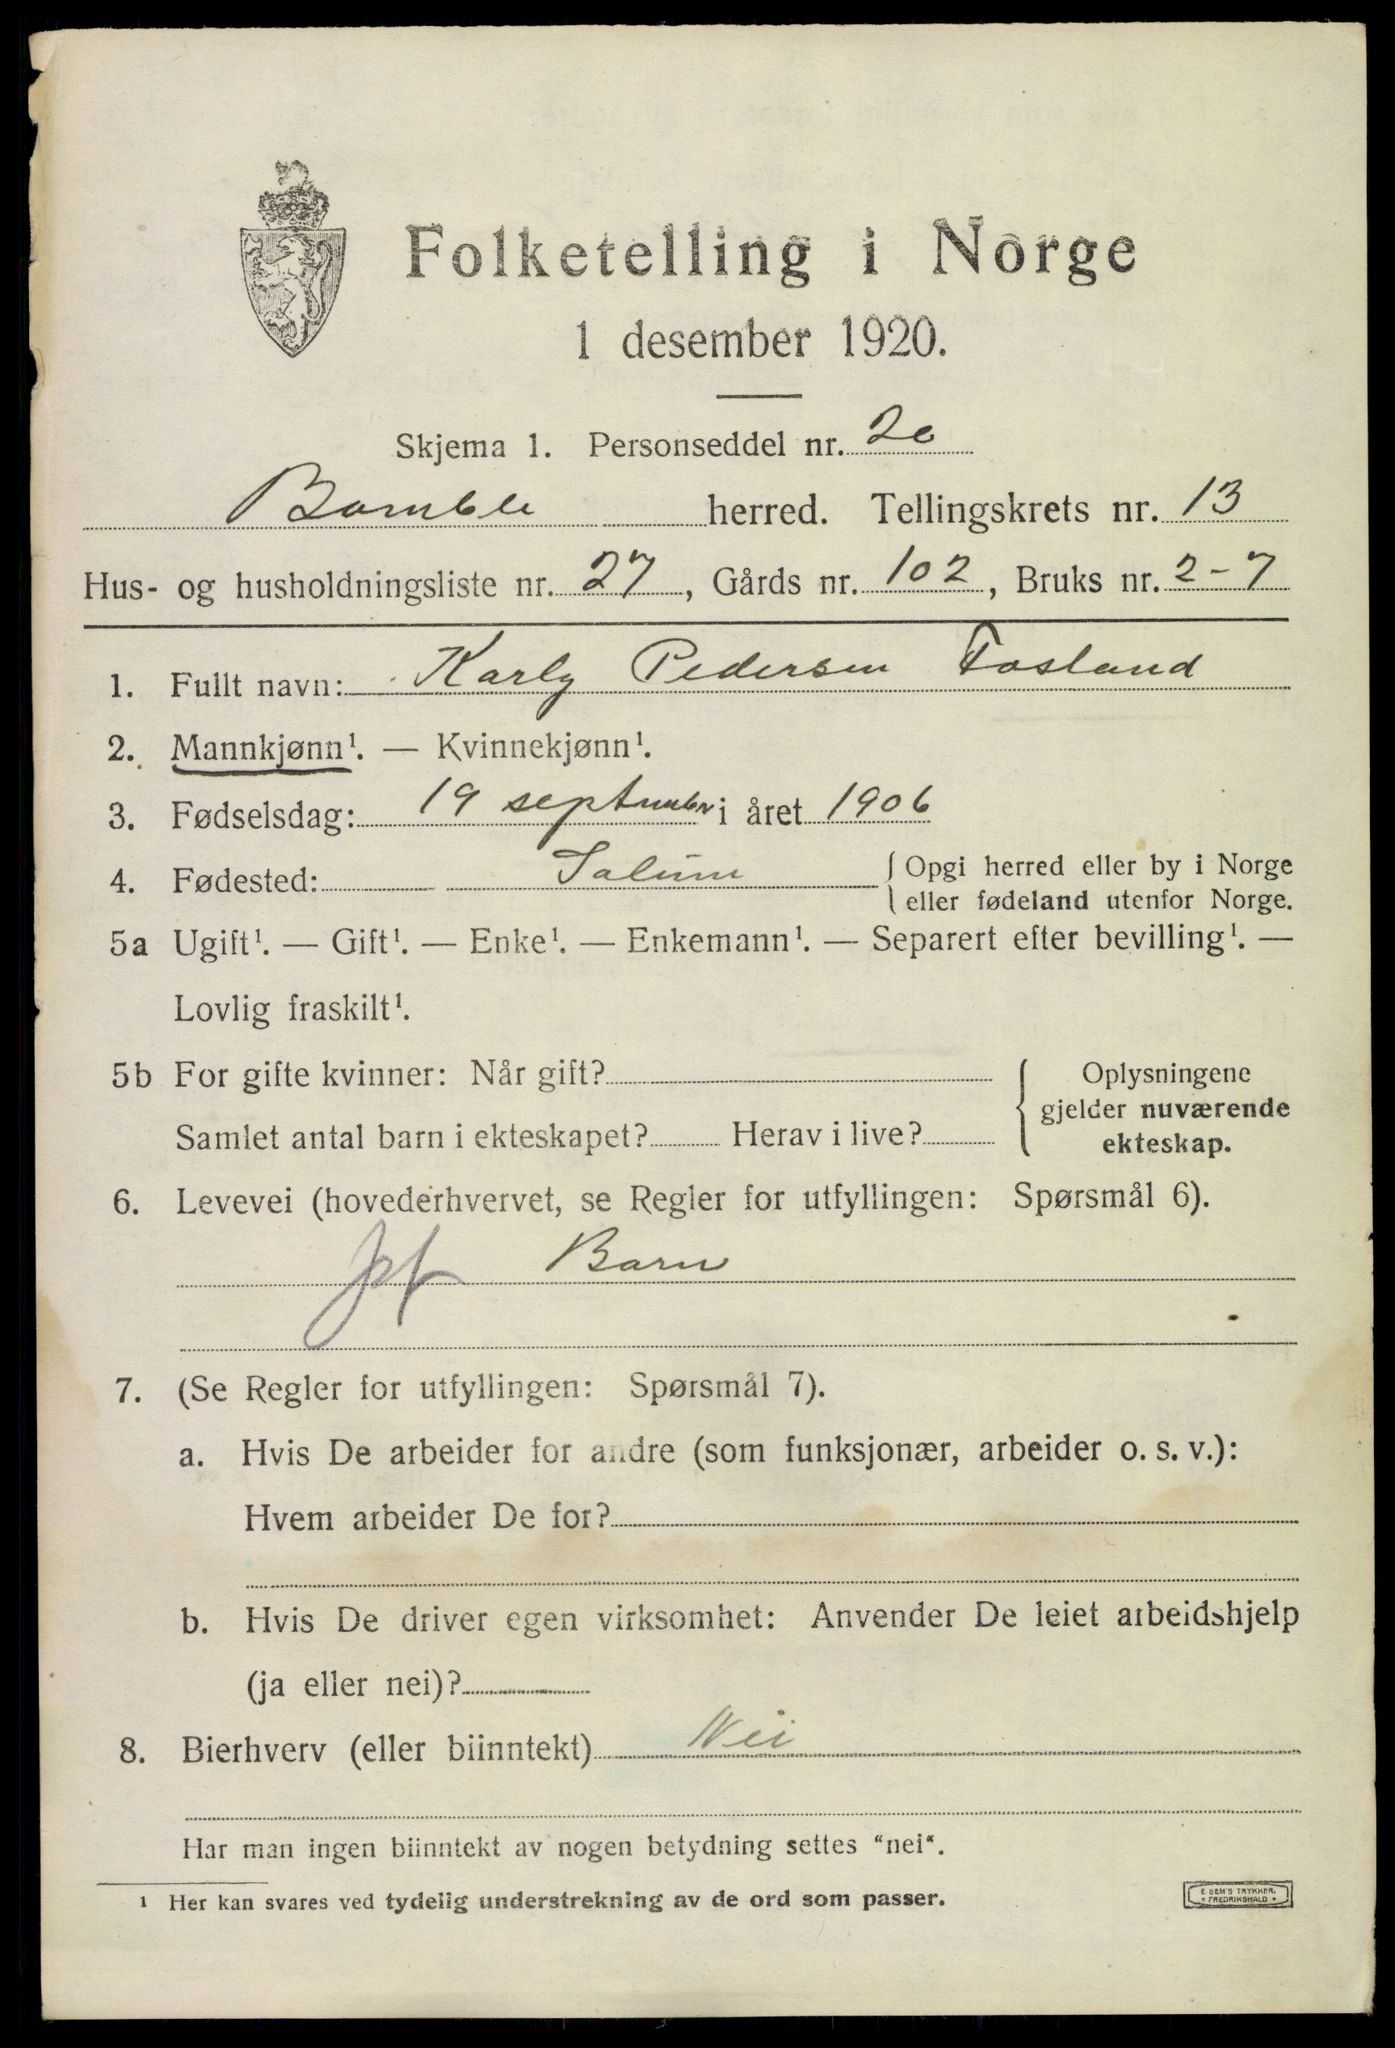 Folketelling i Norge
1 desember 1920.
Skjema 1. Personseddel nr. 20
Bamble herred. Tellingskrets nr. 13
Hus- og husholdningsliste nr. 27, Gårds nr. 102, Bruks nr. 2-7
1. Fullt navn: Karly Pedersen Fosland
2. Mannkjønn¹. — Kvinnekjønn¹.
3. Fødselsdag: 19 september i året 1906
4. Fødested: Solum { Opgi herred eller by i Norge
eller fødeland utenfor Norge.
5a Ugift¹. — Gift¹. — Enke¹. — Enkemann¹. — Separert efter bevilling¹. —
Lovlig fraskilt¹.
5b For gifte kvinner: Når gift? { Oplysningene
gjelder nuværende
Samlet antal barn i ekteskapet? Herav i live? ekteskap.
6. Levevei (hovederhvervet, se Regler for utfyllingen: Spørsmål 6).
Barn
7. (Se Regler for utfyllingen: Spørsmål 7).
a. Hvis De arbeider for andre (som funksjonær, arbeider o. s. v.):
Hvem arbeider De for?
b. Hvis De driver egen virksomhet: Anvender De leiet arbeidshjelp
(ja eller nei)?
8. Bierhverv (eller biinntekt) Nei
Har man ingen biinntekt av nogen betydning settes "nei".
¹ Her kan svares ved tydelig understrekning av de ord som passer.
E. SEM'S TRYKKER.
FREDRIKSHALD